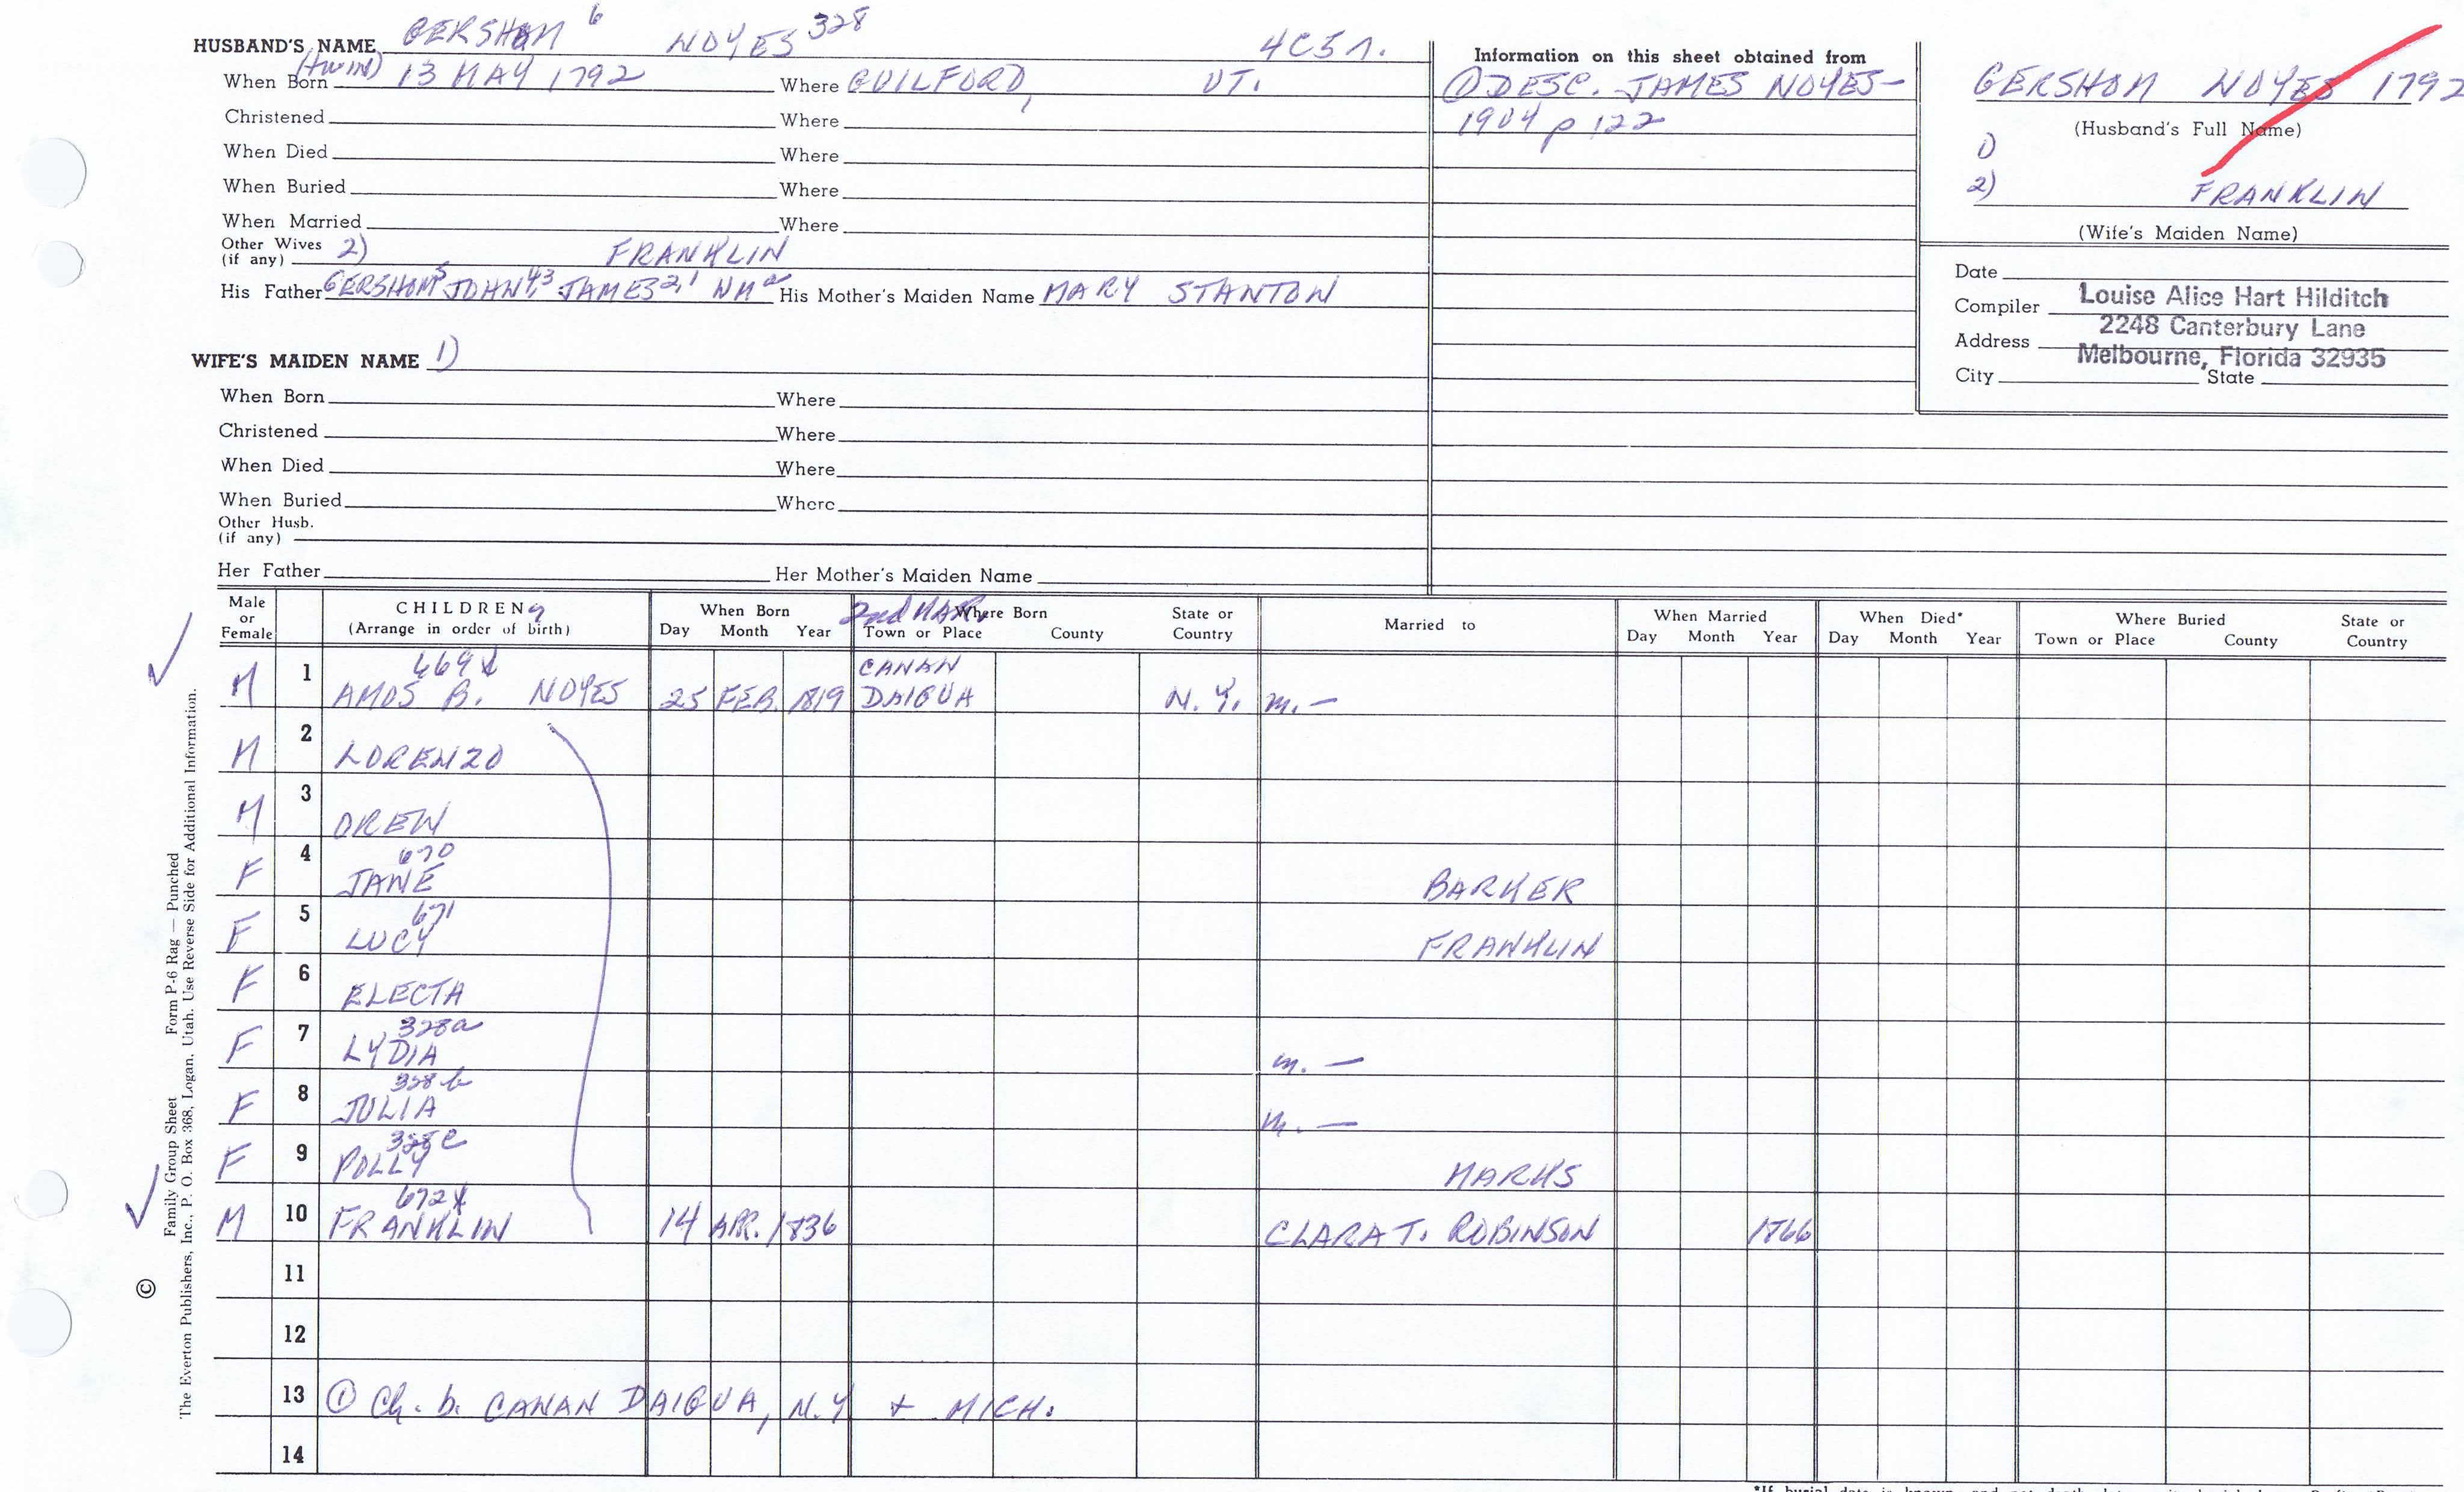 HUSBAND'S NAME GERSHOM 6 NOYES 328 4C5r.
(TWIN)
When Born 13 MAY 1792 Where GUILFORD, VT.
Christened Where
When Died Where
When Buried Where
When Married Where
Other Wives (if any) 2) FRANKLIN
His Father GERSHOM5 JOHN4,3 JAMES2,1 WMa His Mother's Maiden Name MARY STANTON
WIFE'S MAIDEN NAME 1)
When Born Where
Christened Where
When Died Where
When Buried Where
Other Husb.
(if any)
Her Father Her Mother's Maiden Name
Information on this sheet obtained from
① DESC. JAMES NOYES-
1904 p 122
GERSHOM NOYES 1792
(Husband's Full Name)
1)
2) FRANKLIN
(Wife's Maiden Name)
Date
Compiler Louise Alice Hart Hilditch
2248 Canterbury Lane
Address
Melbourne, Florida 32935
City State
Male or Female CHILDREN (Arrange in order of birth) When Born Day Month Year 2nd MAR. Where Born Town or Place County State or Country Married to When Married Day Month Year When Died* Day Month Year Where Buried Town or Place County State or Country
M 1 669x AMOS B. NOYES 25 FEB. 1819 CANAN DAIGUA N.Y. m. —
M 2 LORENZO
M 3 DREW
F 4 670 JANE BARKER
F 5 671 LUCY FRANKLIN
F 6 ELECTA
F 7 328a LYDIA m. —
F 8 328b JULIA m. —
F 9 328c POLLY MARKS
M 10 672x FRANKLIN 14 APR. 1836 CLARA T. ROBINSON 1866
11
12
13 ① Ch. b. CANAN DAIGUA, N.Y + MICH.
14
Family Group Sheet Form P-6 Rag — Punched
© The Everton Publishers, Inc., P. O. Box 368, Logan, Utah. Use Reverse Side for Additional Information.